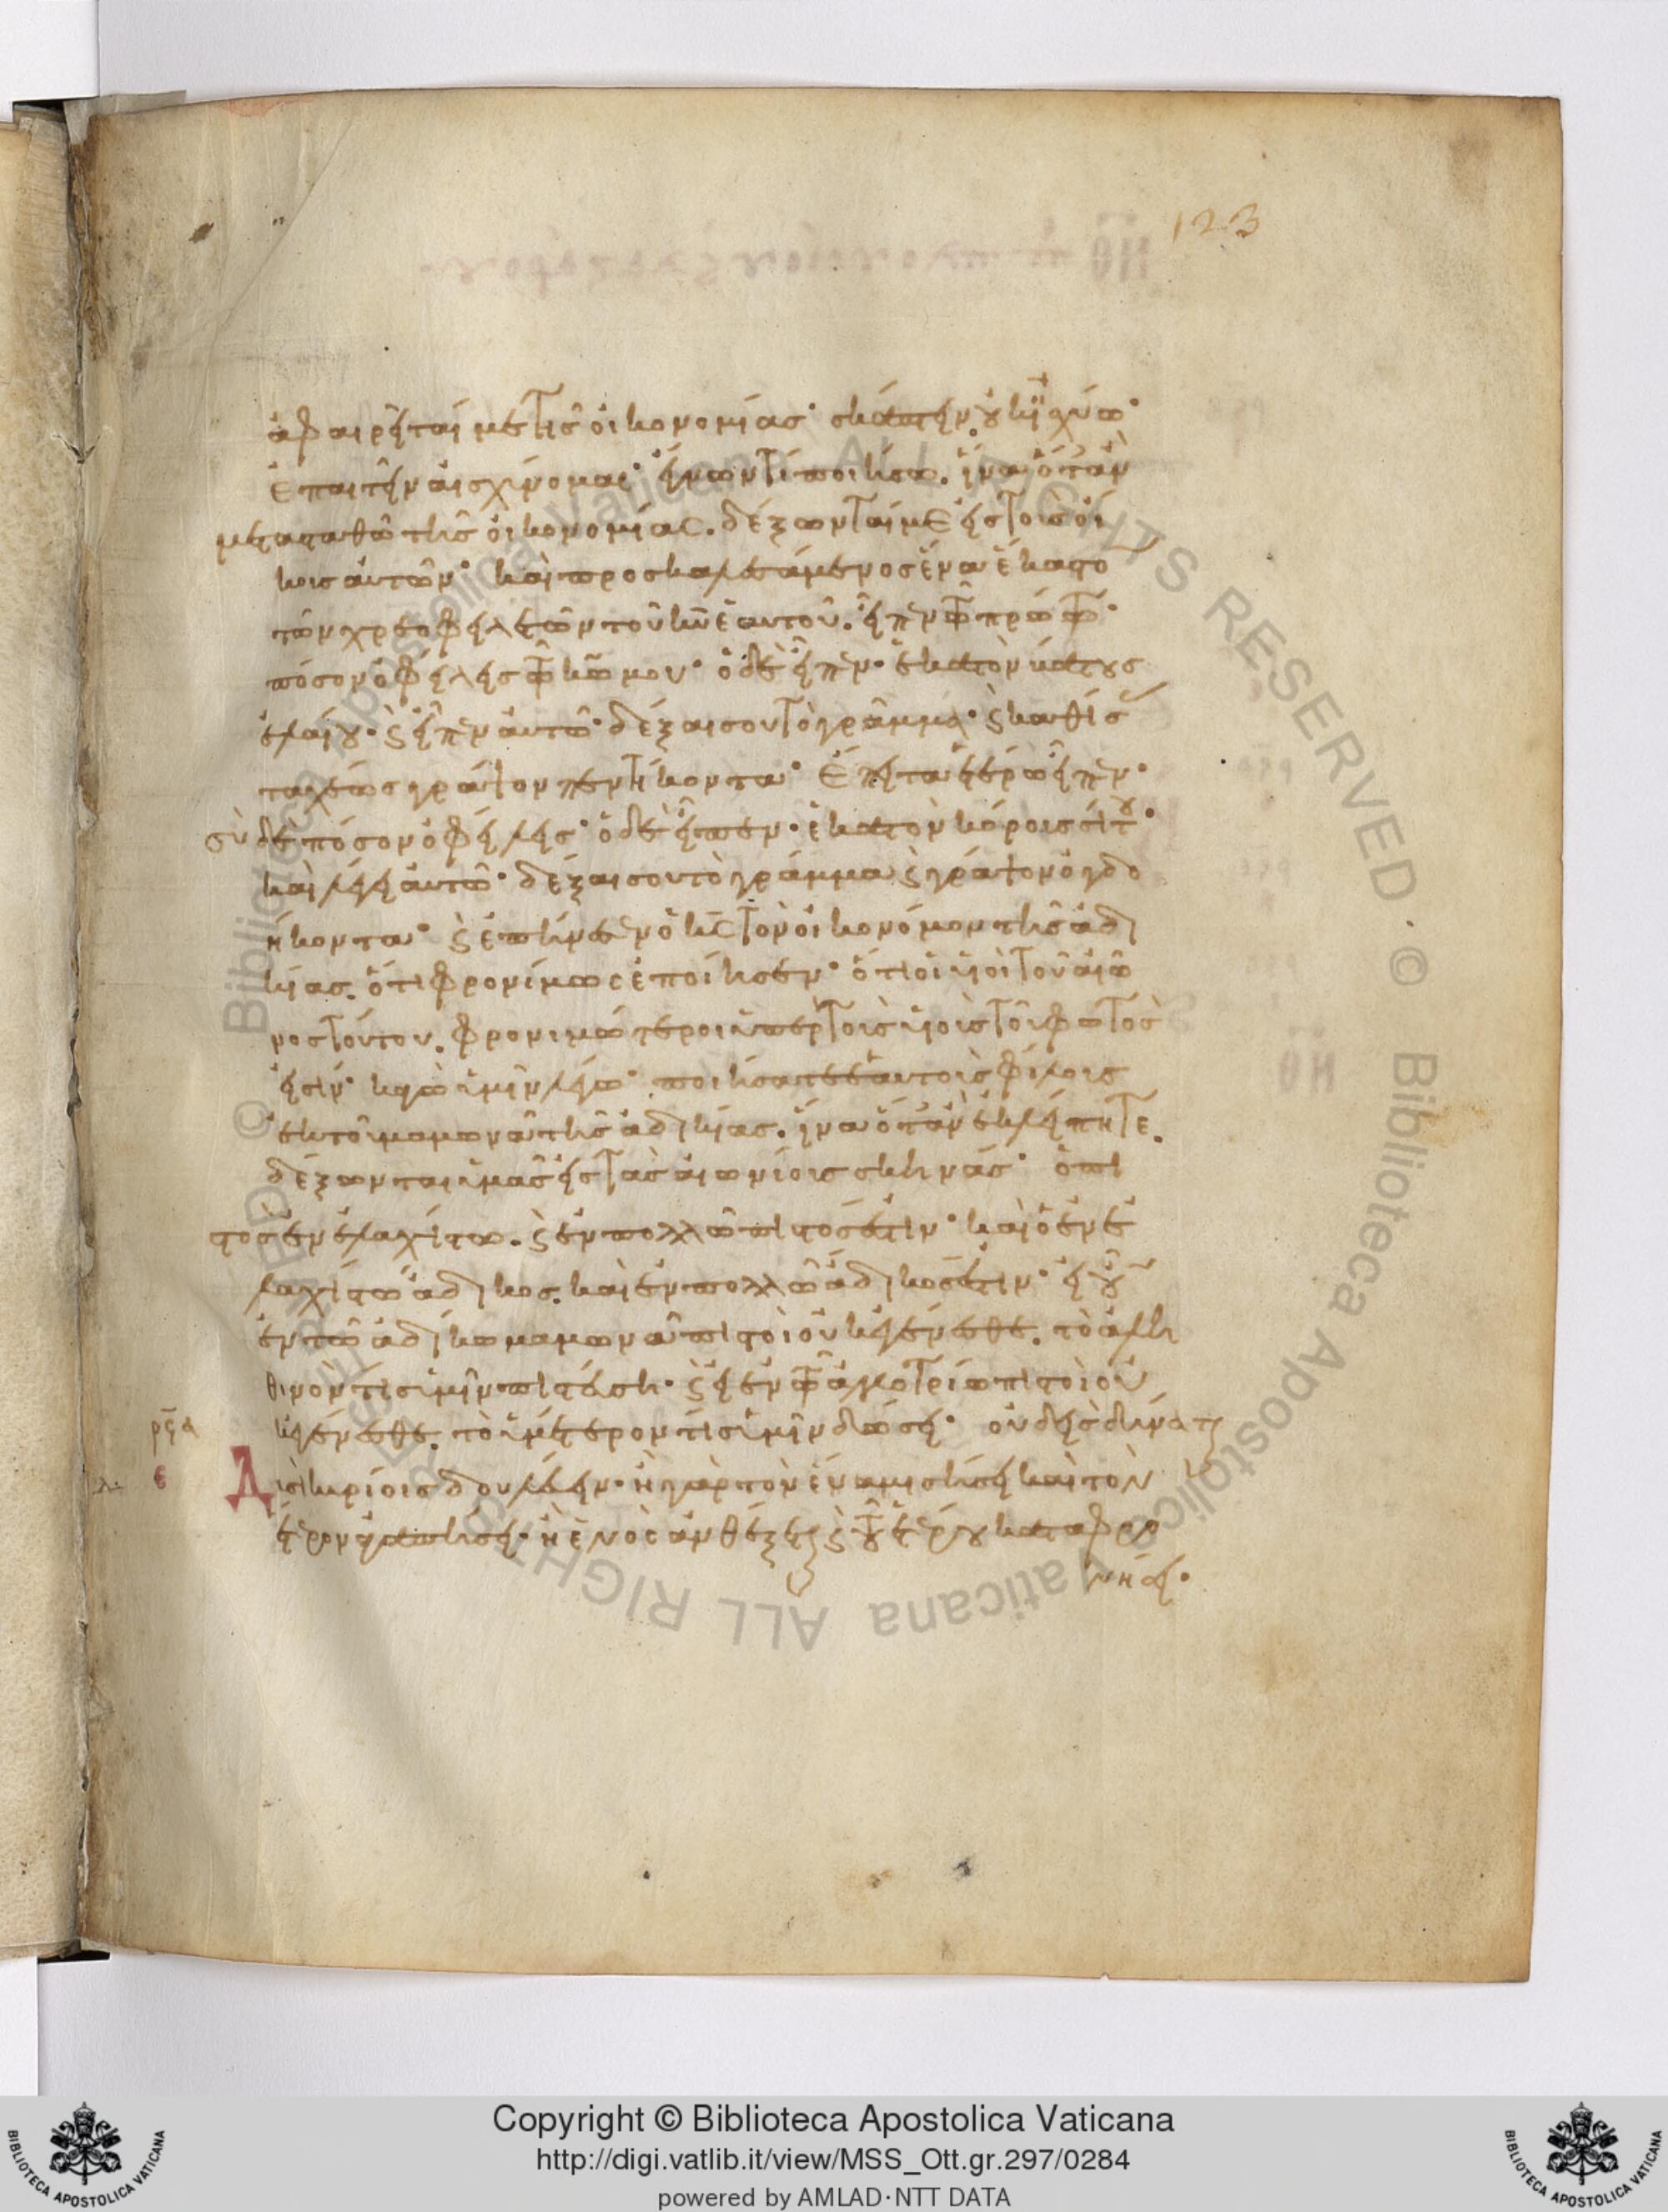 123
ἀφαιρῆται με τῆς οἰκονομίας· σκάπτην οὐκ ἠσχύω·
ἐπαιτῆν αἰσχύνομαι· ἔγνων τί ποιήσω. ἵνα ὅταν
μετασταθῶ τῆς οἰκονομίας. δέξωνταί με εἰς τοὺς οἴ
κοις αὐτῶν· καὶ προσκαλεσάμενος ἕνα ἕκαστο
τῶν χρεοφειλετῶν τοῦ κ̅υ̅ ἑαυτοῦ. εἶπεν τῶ πρώτω·
πόσον ὀφείλεις τῶ κ̅ω̅ μου· ὁ δὲ εἶπεν· ἑκατὸν κάτους
ἐλαίου· ϗ εἶπεν αὐτῶ· δέξαι σου τὸ γράμμα· ϗ καθίσ
ταχέως γράψον πεντήκοντα· ἔπειτα ἑτέρω εἶπεν·
σὺ δὲ πόσον ὀφείλεις· ὁ δὲ εἶπεν· ἑκατὸν κόροις σίτου·
καὶ λέγει αὐτῶ· δέξαι σου τὸ γράμμα ϗ γράψον ὀγδο
ήκοντα· ϗ ἐπήνεσεν ὁ κ̅ς̅ τὸν οἰκονόμον τῆς ἀδι
κίας. ὅτι φρονίμως ἐποίησεν· ὅτι οἱ υἱοὶ τοῦ αἰῶ
νος τούτου. φρονιμώτεροι ὑπὲρ τοὺς υἱοὺς τοῦ φωτὸς
εἰσίν· κἀγὼ ὑμῖν λέγω· ποιήσατε ἑαυτοῖς φίλοις
ἐκ τοῦ μαμωνᾶ τῆς ἀδικίας. ἵνα ὅταν ἐκλείπητε.
δέξωνται ὑμᾶς εἰς τὰς αἰωνίοις σκηνάς· ὁ πι
στὸς ἐν ἐλαχίστω. ϗ ἐν πολλῶ πιστός ἐστιν· καὶ ὁ ἐν ἐ
λαχίστω ἄδικος. καὶ ἐν πολλῶ ἄδικός ἐστιν· εἰ οὖν
ἐν τῶ ἀδίκω μαμωνᾶ πιστοὶ οὐκ ἐγένεσθε. τὸ ἀλη
θινὸν τίς ὑμῖν πιστεύση· ϗ εἰ ἐν τῶ ἀλλοτρίω πιστοὶ οὐ
κ ἐγένεσθε. τὸ ὑμέτερον τίς ὑμῖν δώσει· οὐδεὶς δύναται
ρϟα
ε
Δισὶ κυρίοις δουλεύειν· ἢ γὰρ τὸν ἕνα μισήσει καὶ τὸν
ἕτερον ἀγαπήσει· ἢ ἑνὸς ἀνθέξεται ϗ τοῦ ἑτέρου καταφρο
νήσει·
Copyright © Biblioteca Apostolica Vaticana
http://digi.vatlib.it/view/MSS_Ott.gr.297/0284
powered by AMLAD·NTT DATA
BIBLIOTECA APOSTOLICA VATICANA
BIBLIOTECA APOSTOLICA VATICANA